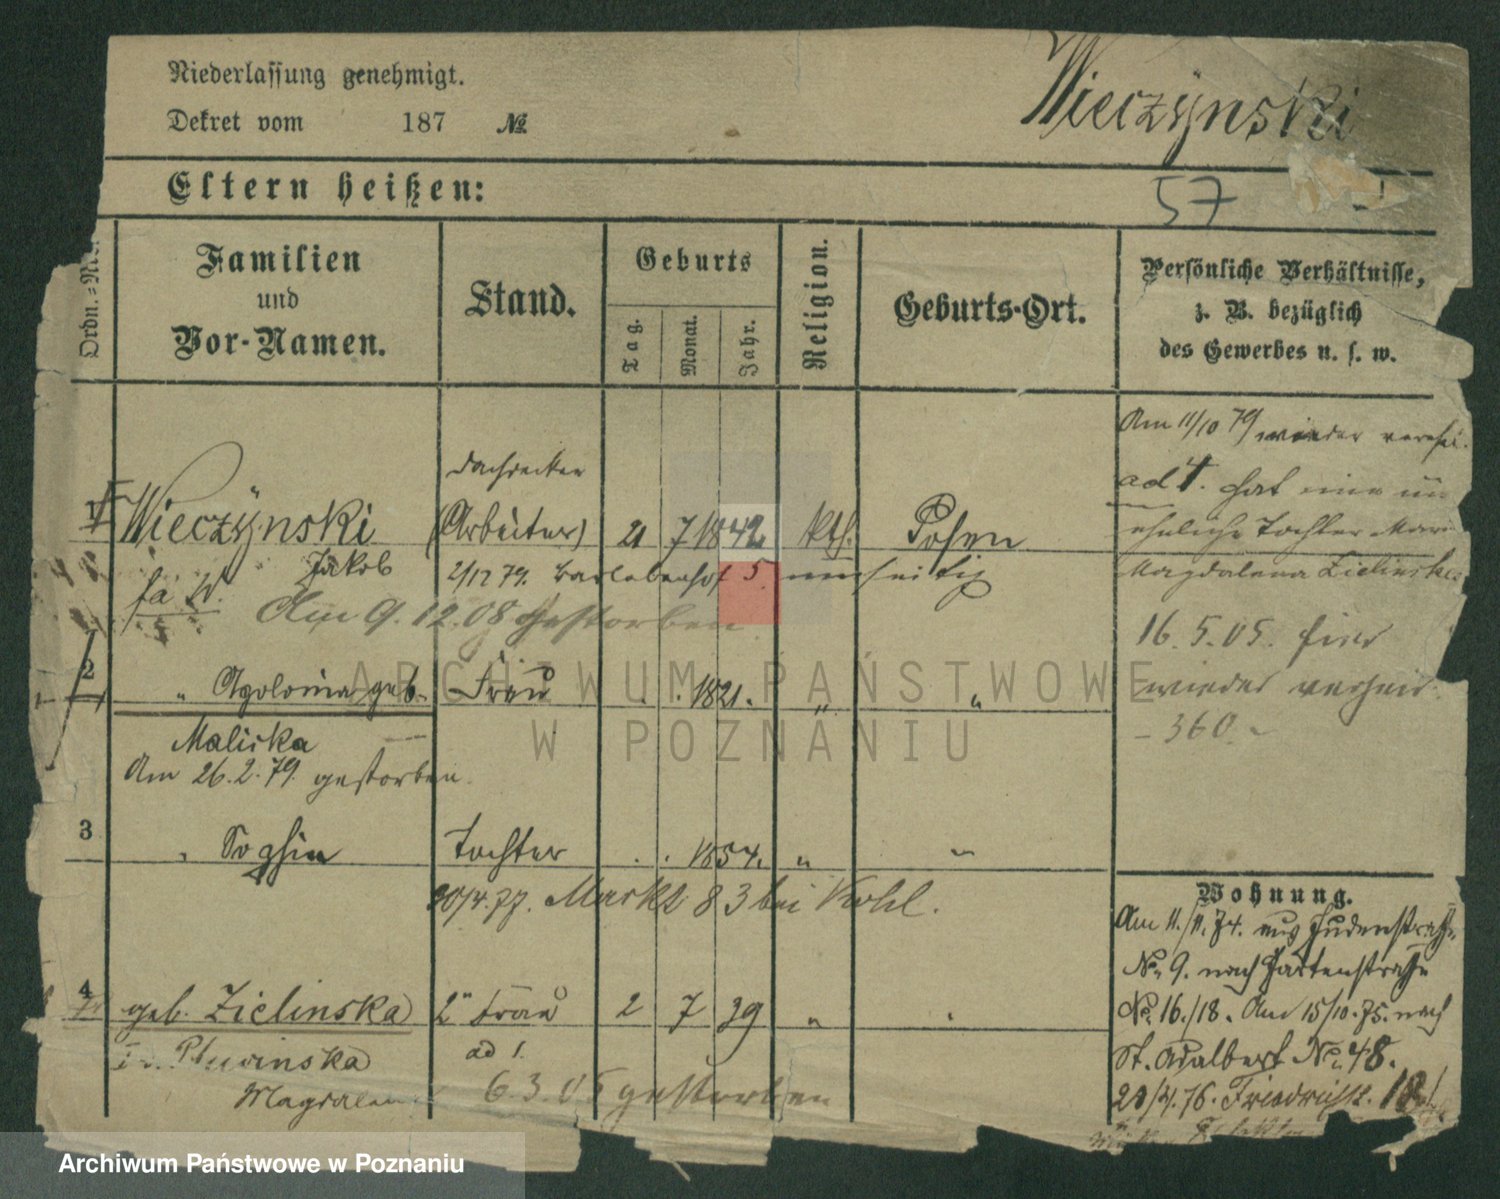 Niederlassung genehmigt.
Dekret vom 187 №
Wieczynski
Eltern heißen:
57
Ordn.-Nr.
Familien
und
Vor-Namen.
Stand.
Geburts
Tag.
Monat.
Jahr.
Religion.
Geburts-Ort.
Persönliche Verhältnisse,
z. B. bezüglich
des Gewerbes u. s. w.
Am 11/10 79 wieder
Dachdecker
ad 4. hat eine un
1 Wieczynski (Arbeiter) 21 7 1842 kth. Posen
eheliche Tochter
Jakob
2/12 79.
5.
Magdalena Zielinska
Am 9.12.08 gestorben
16.5.05. hier
wieder
- 360 -
2 " Apolonia geb. Frau . . 1821. " "
Maliska
Am 26.2.79. gestorben.
3 " Sophia Tochter . . 1854. " "
Markt 83 bei Kohl.
Wohnung.
Am 11./11.74. aus Judenstraße
No. 9. nach Gartenstraße
No. 16./18. Am 15/10.75. nach
St. Adalbert No. 48.
Friedrichst. 18
4 geb. Zielinska 2" Frau 2 7 39 " "
ad 1.
Magdalena
6.3.05 gestorben
ARCHIWUM PAŃSTWOWE
W POZNANIU
Archiwum Państwowe w Poznaniu